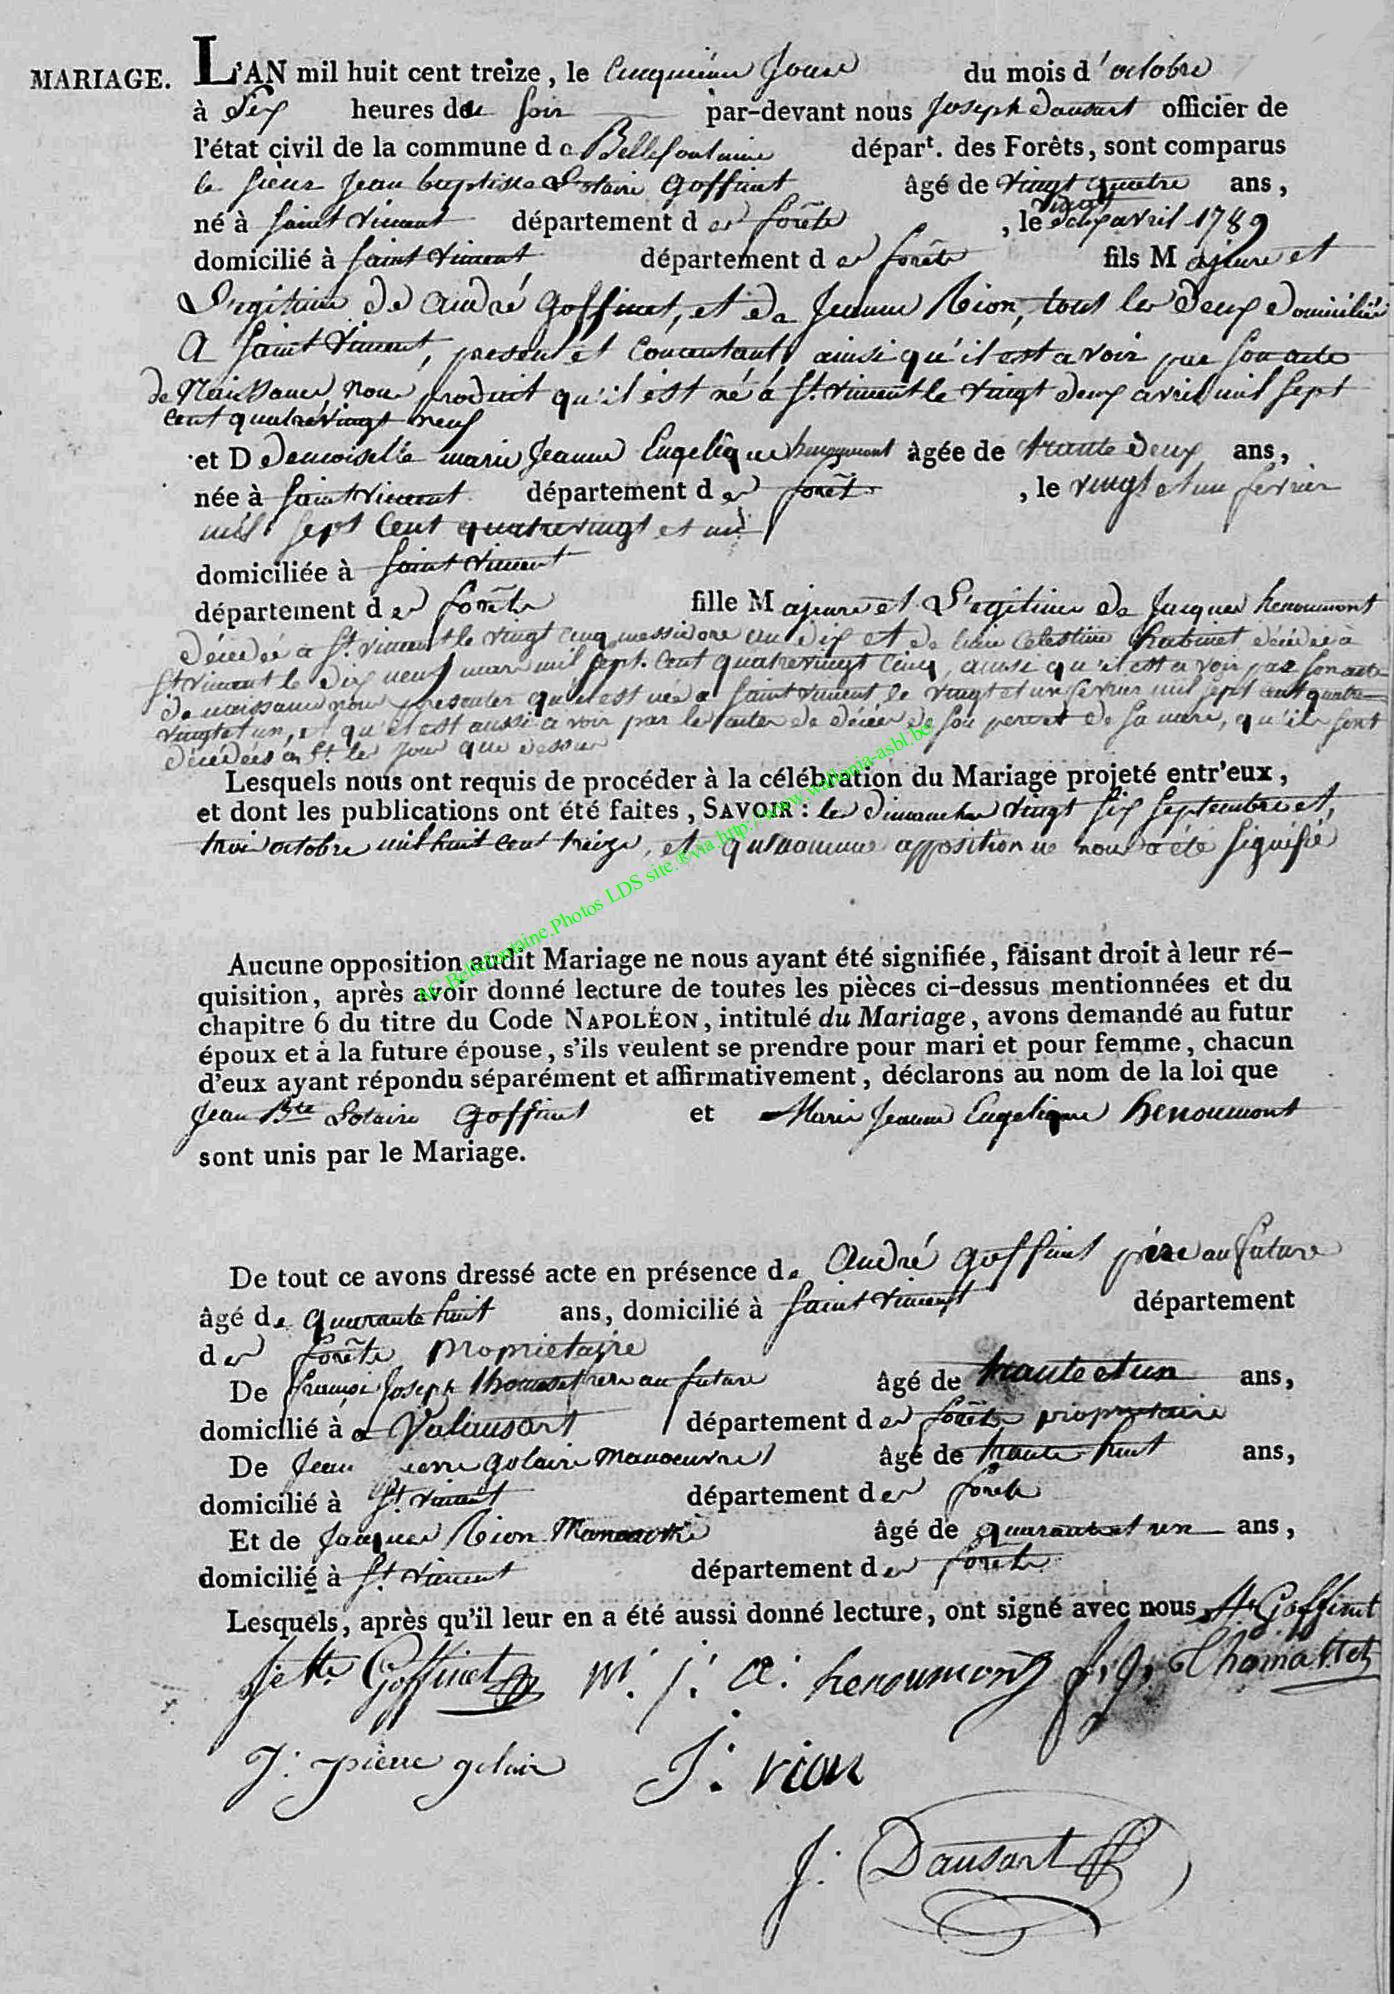 MARIAGE. L'AN mil huit cent treize, le cinquieme Jour du mois d'octobre
à Six heures du soir par-devant nous Joseph dausart officier de
l'état civil de la commune de Bellefontaine départ. des Forêts, sont comparus
le sieur Jean baptiste Golaire Goffinet âgé de vingt quatre ans,
né à saint vincent département des forêts, le vingt deux avril 1789
domicilié à saint vincent département des forêts fils Majeure et
Légitime de andré Goffinet, et de Jeanne Rion, tout les deux domiciliés
A saint vincent, present et consentant, ainsi qu'il est a voir par son acte
de Naissance, nous produit qu'il est né à St. vincent le vingt deux avril mil sept
cent quatrevingt neuf
et D demoiselle marie Jeanne Engelique henoumont âgée de trente deux ans,
née à saint vincent département des forêts, le vingt et un fevrier
mil sept cent quatrevingt et un
domiciliée à saint vincent
département des forêts fille Majeure et Légitime de Jacques henoumont
décédé à St. vincent le vingt cinq messidore an dix et de Celestine habinet décédée à
St. vincent le dix neuf mars mil sept cent quatrevingt cinq, ainsi qu'il est a voir par son acte
de naissance nous presenter qu'il est née a saint vincent le vingt et un fevrier mil sept cent quatre
vingt et un, et qu'il est aussi a voir par les actes de décès de son pere et de sa mere, qu'ils sont
décédées a St. le jour que dessus
Lesquels nous ont requis de procéder à la célébration du Mariage projeté entr'eux,
et dont les publications ont été faites, SAVOIR : les dimanches vingt six septembre et,
trois octobre mil huit cent treize, et qu'aucune opposition ne nous a été signifié
Aucune opposition audit Mariage ne nous ayant été signifiée, faisant droit à leur ré-
quisition, après avoir donné lecture de toutes les pièces ci-dessus mentionnées et du
chapitre 6 du titre du Code NAPOLÉON, intitulé du Mariage, avons demandé au futur
époux et à la future épouse, s'ils veulent se prendre pour mari et pour femme, chacun
d'eux ayant répondu séparément et affirmativement, déclarons au nom de la loi que
Jean Bte Golaire Goffinet et Marie Jeanne Engelique henoumont
sont unis par le Mariage.
De tout ce avons dressé acte en présence de André Goffinet père au future
âgé de quarante huit ans, domicilié à saint vincent département
des forêts propriétaire
De françois Joseph thomasset frere au future âgé de trente et un ans,
domicilié à a Valansart département des forêts propriétaire
De Jean pierre golaire manoeuvre âgé de trente huit ans,
domicilié à St. vincent département des forêts
Et de Jacques Rion Manoeuvre âgé de quarante et un ans,
domicilié à St. vincent département des forêts
Lesquels, après qu'il leur en a été aussi donné lecture, ont signé avec nous Goffinet
Goffinet m. j. a. henoumont f. j. Thomasset
J. pierre golair J. rion
J. Dausart
AC.Bellefontaine.Photos LDS site.®via.http://www.wallonia-asbl.be